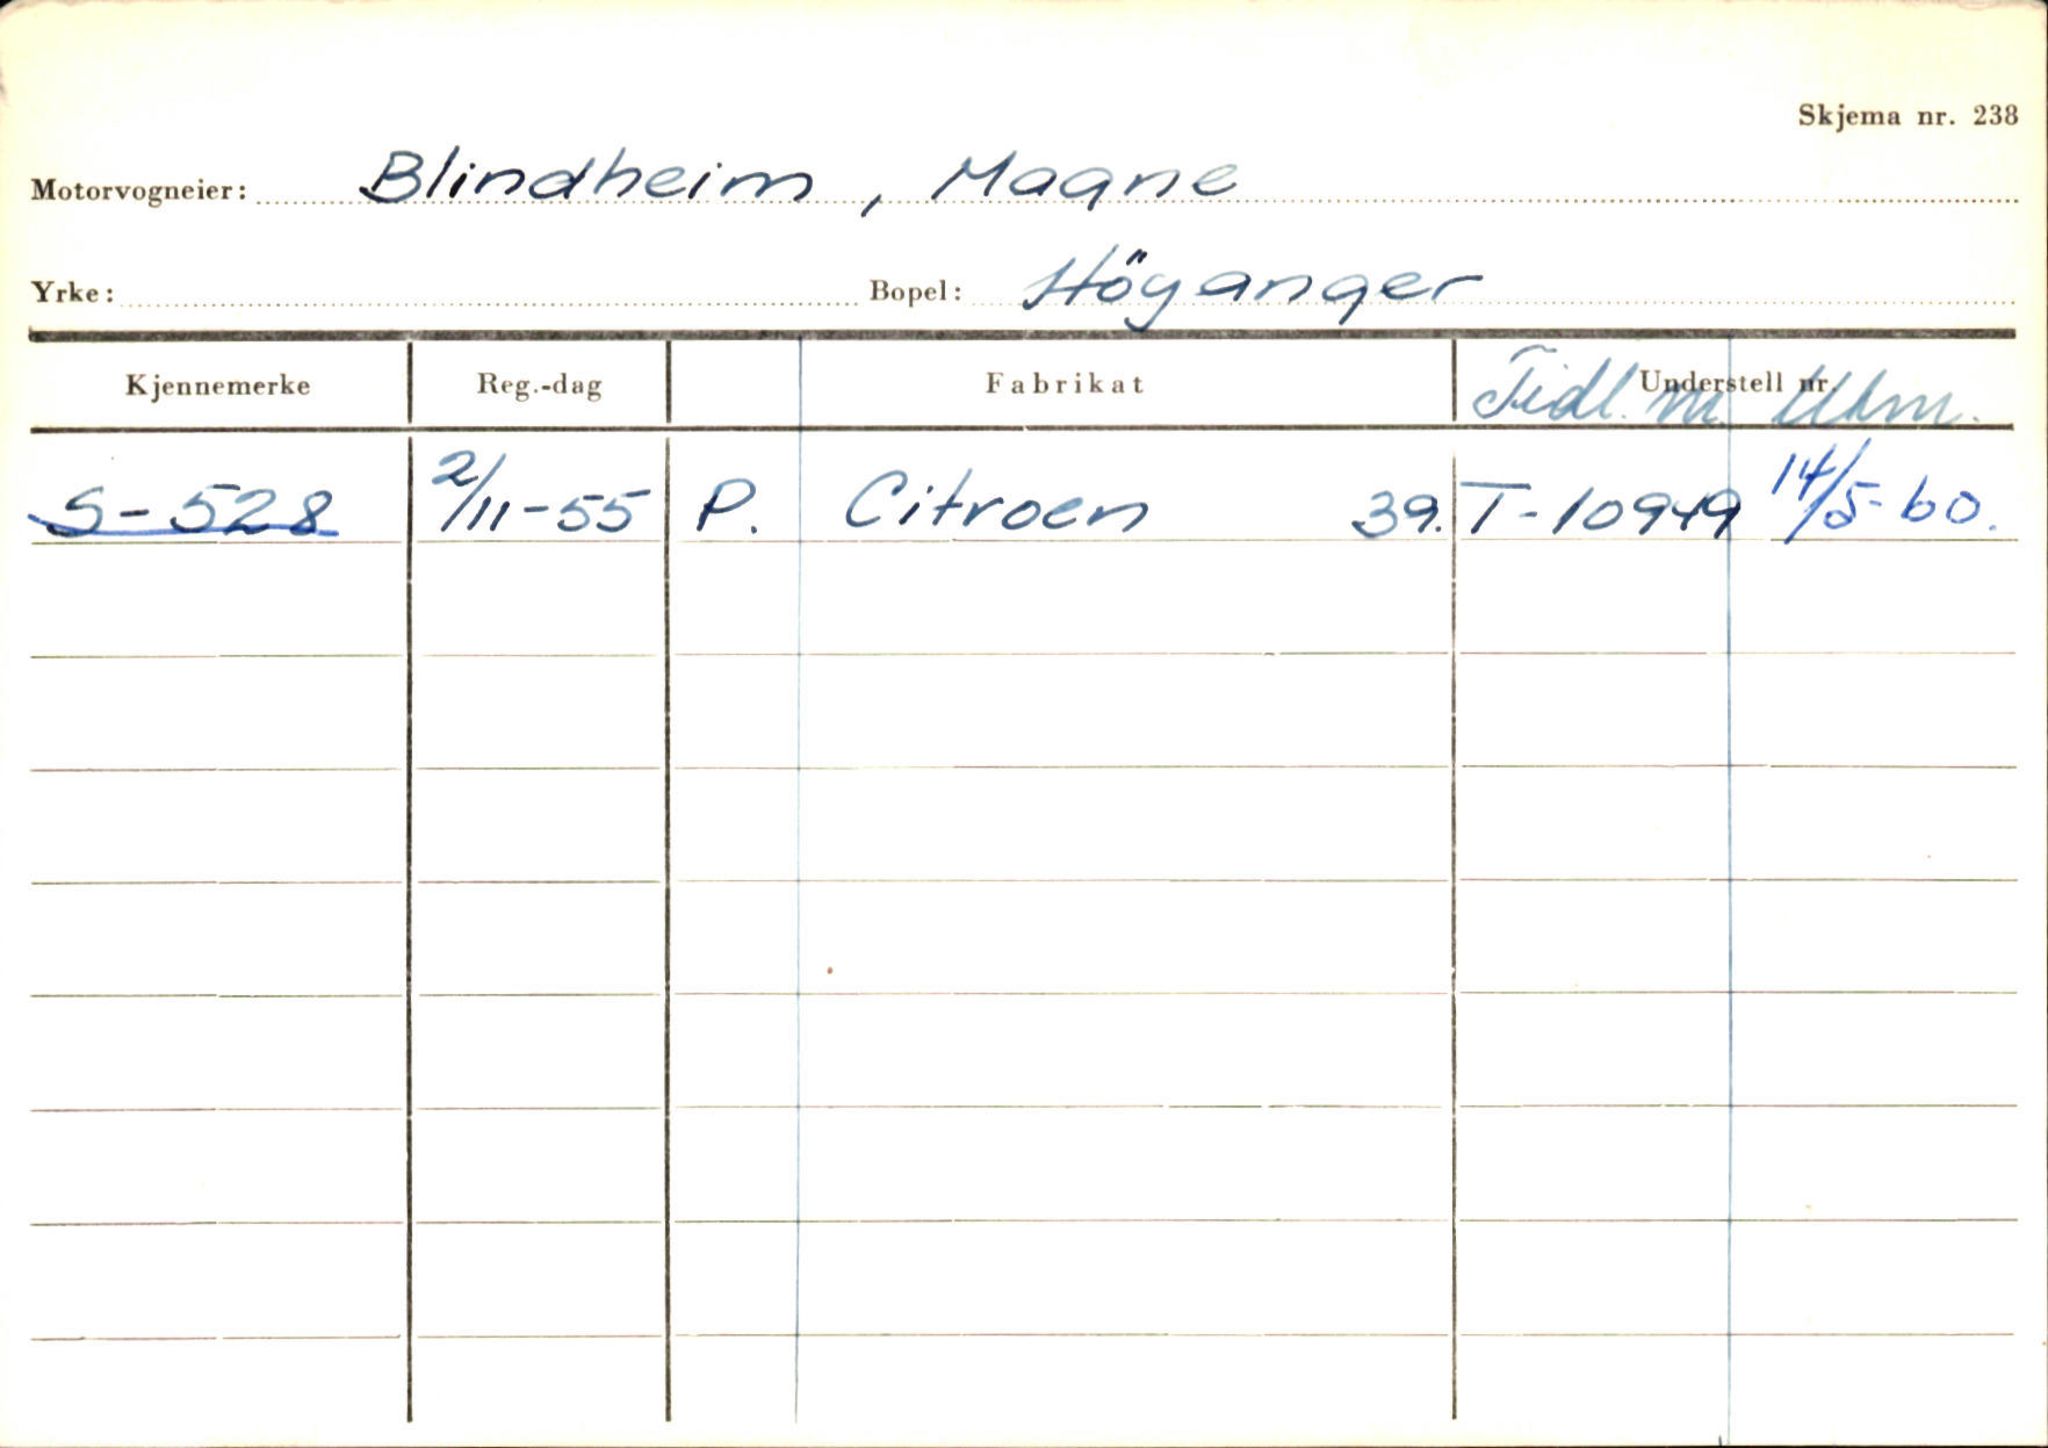 Skjema nr. 238
Motorvogneier: Blindheim, Magne
Yrke: Bopel: Höyanger
Kjennemerke Reg.-dag Fabrikat Understell nr.
Tidl. m.
S-528 2/11-55 P. Citroen 39. T-10949 14/5-60.